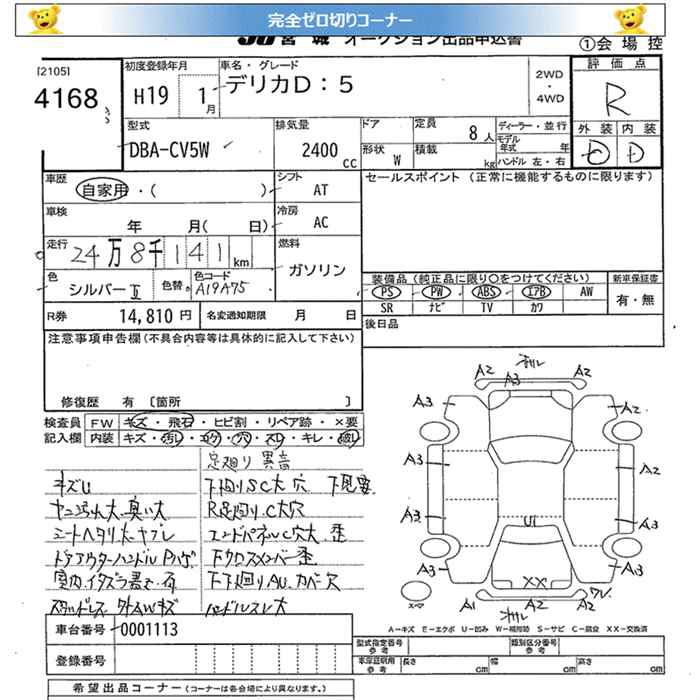 完全ゼロ切りコーナー
JU 宮城 オークション出品申込書
①会場控
[2105]
4168
初度登録年月
H19 1月
車名・グレード
デリカD：5
2WD・4WD
評価点
R
外装 内装
D D
型式
DBA-CV5W
排気量
2400 cc
ドア
形状 W
定員 8人
積載 kg
ディーラー・並行
モデル年式 年
ハンドル 左・右
車歴
自家用・( )
シフト AT
セールスポイント (正常に機能するものに限ります)
車検
年 月( 日)
冷房 AC
走行
24万8千141km
燃料
ガソリン
色
シルバーⅡ
色替
色コード
A19A75
装備品 (純正品に限り○をつけてください)
新車保証書
PS PW ABS エアB AW
有・無
SR ナビ TV カワ
R券 14,810円
名変通知期限 月 日
後日品
注意事項申告欄 (不具合内容等は具体的に記入して下さい)
修復歴 有 [箇所 ]
検査員記入欄
FW キズ・飛石・ヒビ割・リペア跡・×要
内装 キズ・汚レ・コゲ・穴・スレ・キレ・破レ
足廻り異音
キズU
下廻りSC大穴 下見要
ヤニ汚れ大、臭い大
R足廻りC大穴
シートヘタリ大、ヤブレ
エンドパネルC穴大、歪
ドアアウターハンドルPハゲ
下クロスメンバー歪
下下廻りAU、カバー穴
スタッドレス 外AWキズ
ハンドルスレ大
A2 A3 A2
A3 A2
A3 A2
A3 U1 A3
A3 A3
XX
スペア
A1 A2 A2
A－キズ E－エクボ U－凹み W－補修跡 S－サビ C－腐食 XX－交換済
車台番号 0001113
登録番号
型式指定番号 参考
類別区分番号
車庫証明用 参考
長さ cm 幅 cm 高さ cm
希望出品コーナー (コーナーは各会場により異なります。)